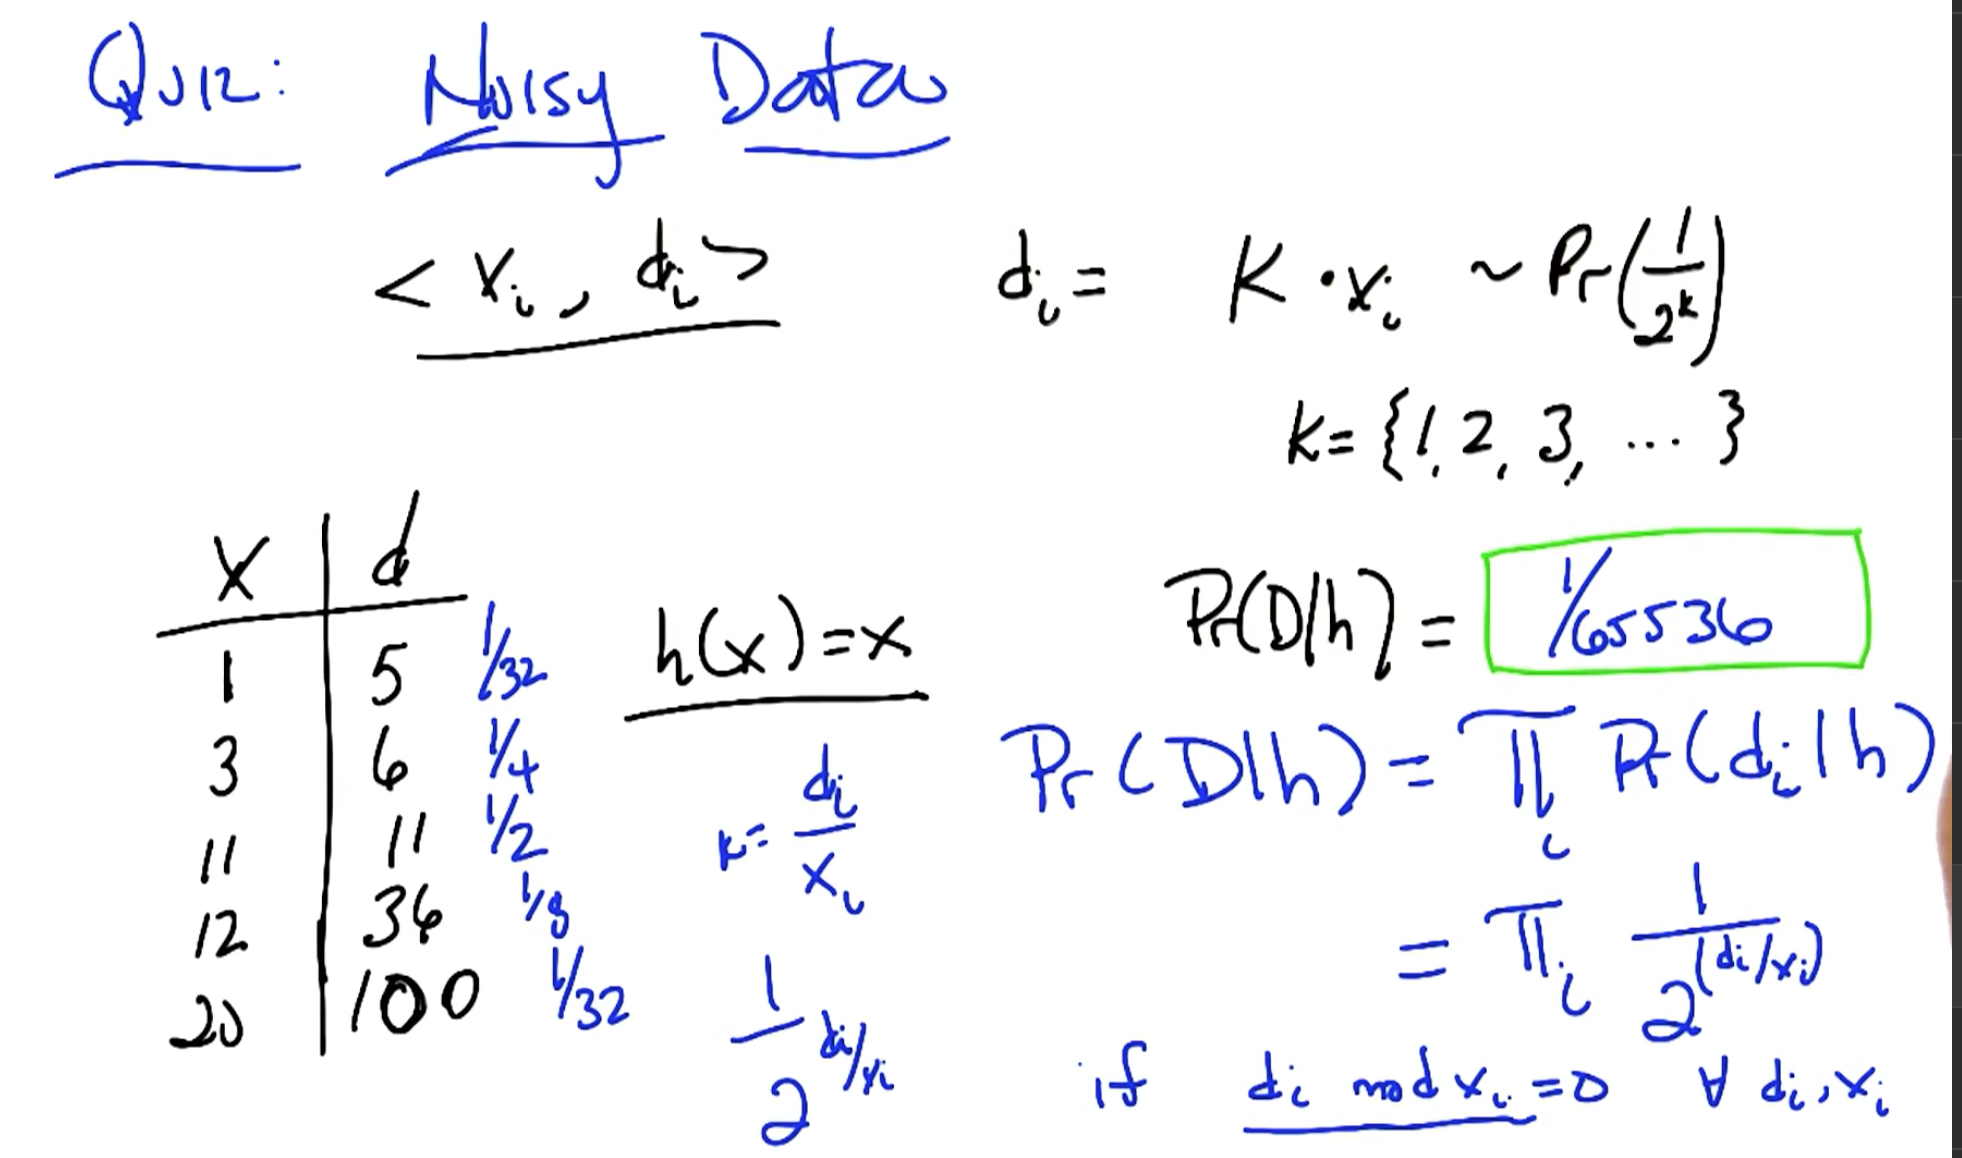 Quiz: Noisy Data
< xi, di > di = k · xi ~ Pr(1/2^k)
k = {1, 2, 3, ... }
x | d
1 | 5 1/32
3 | 6 1/4
11 | 11 1/2
12 | 36 1/8
20 | 100 1/32
h(x) = x
k = di/xi
1/2^(di/xi)
Pr(D|h) = 1/65536
Pr(D|h) = ∏i Pr(di|h)
= ∏i 1/2^(di/xi)
if di mod xi = 0 ∀ di, xi